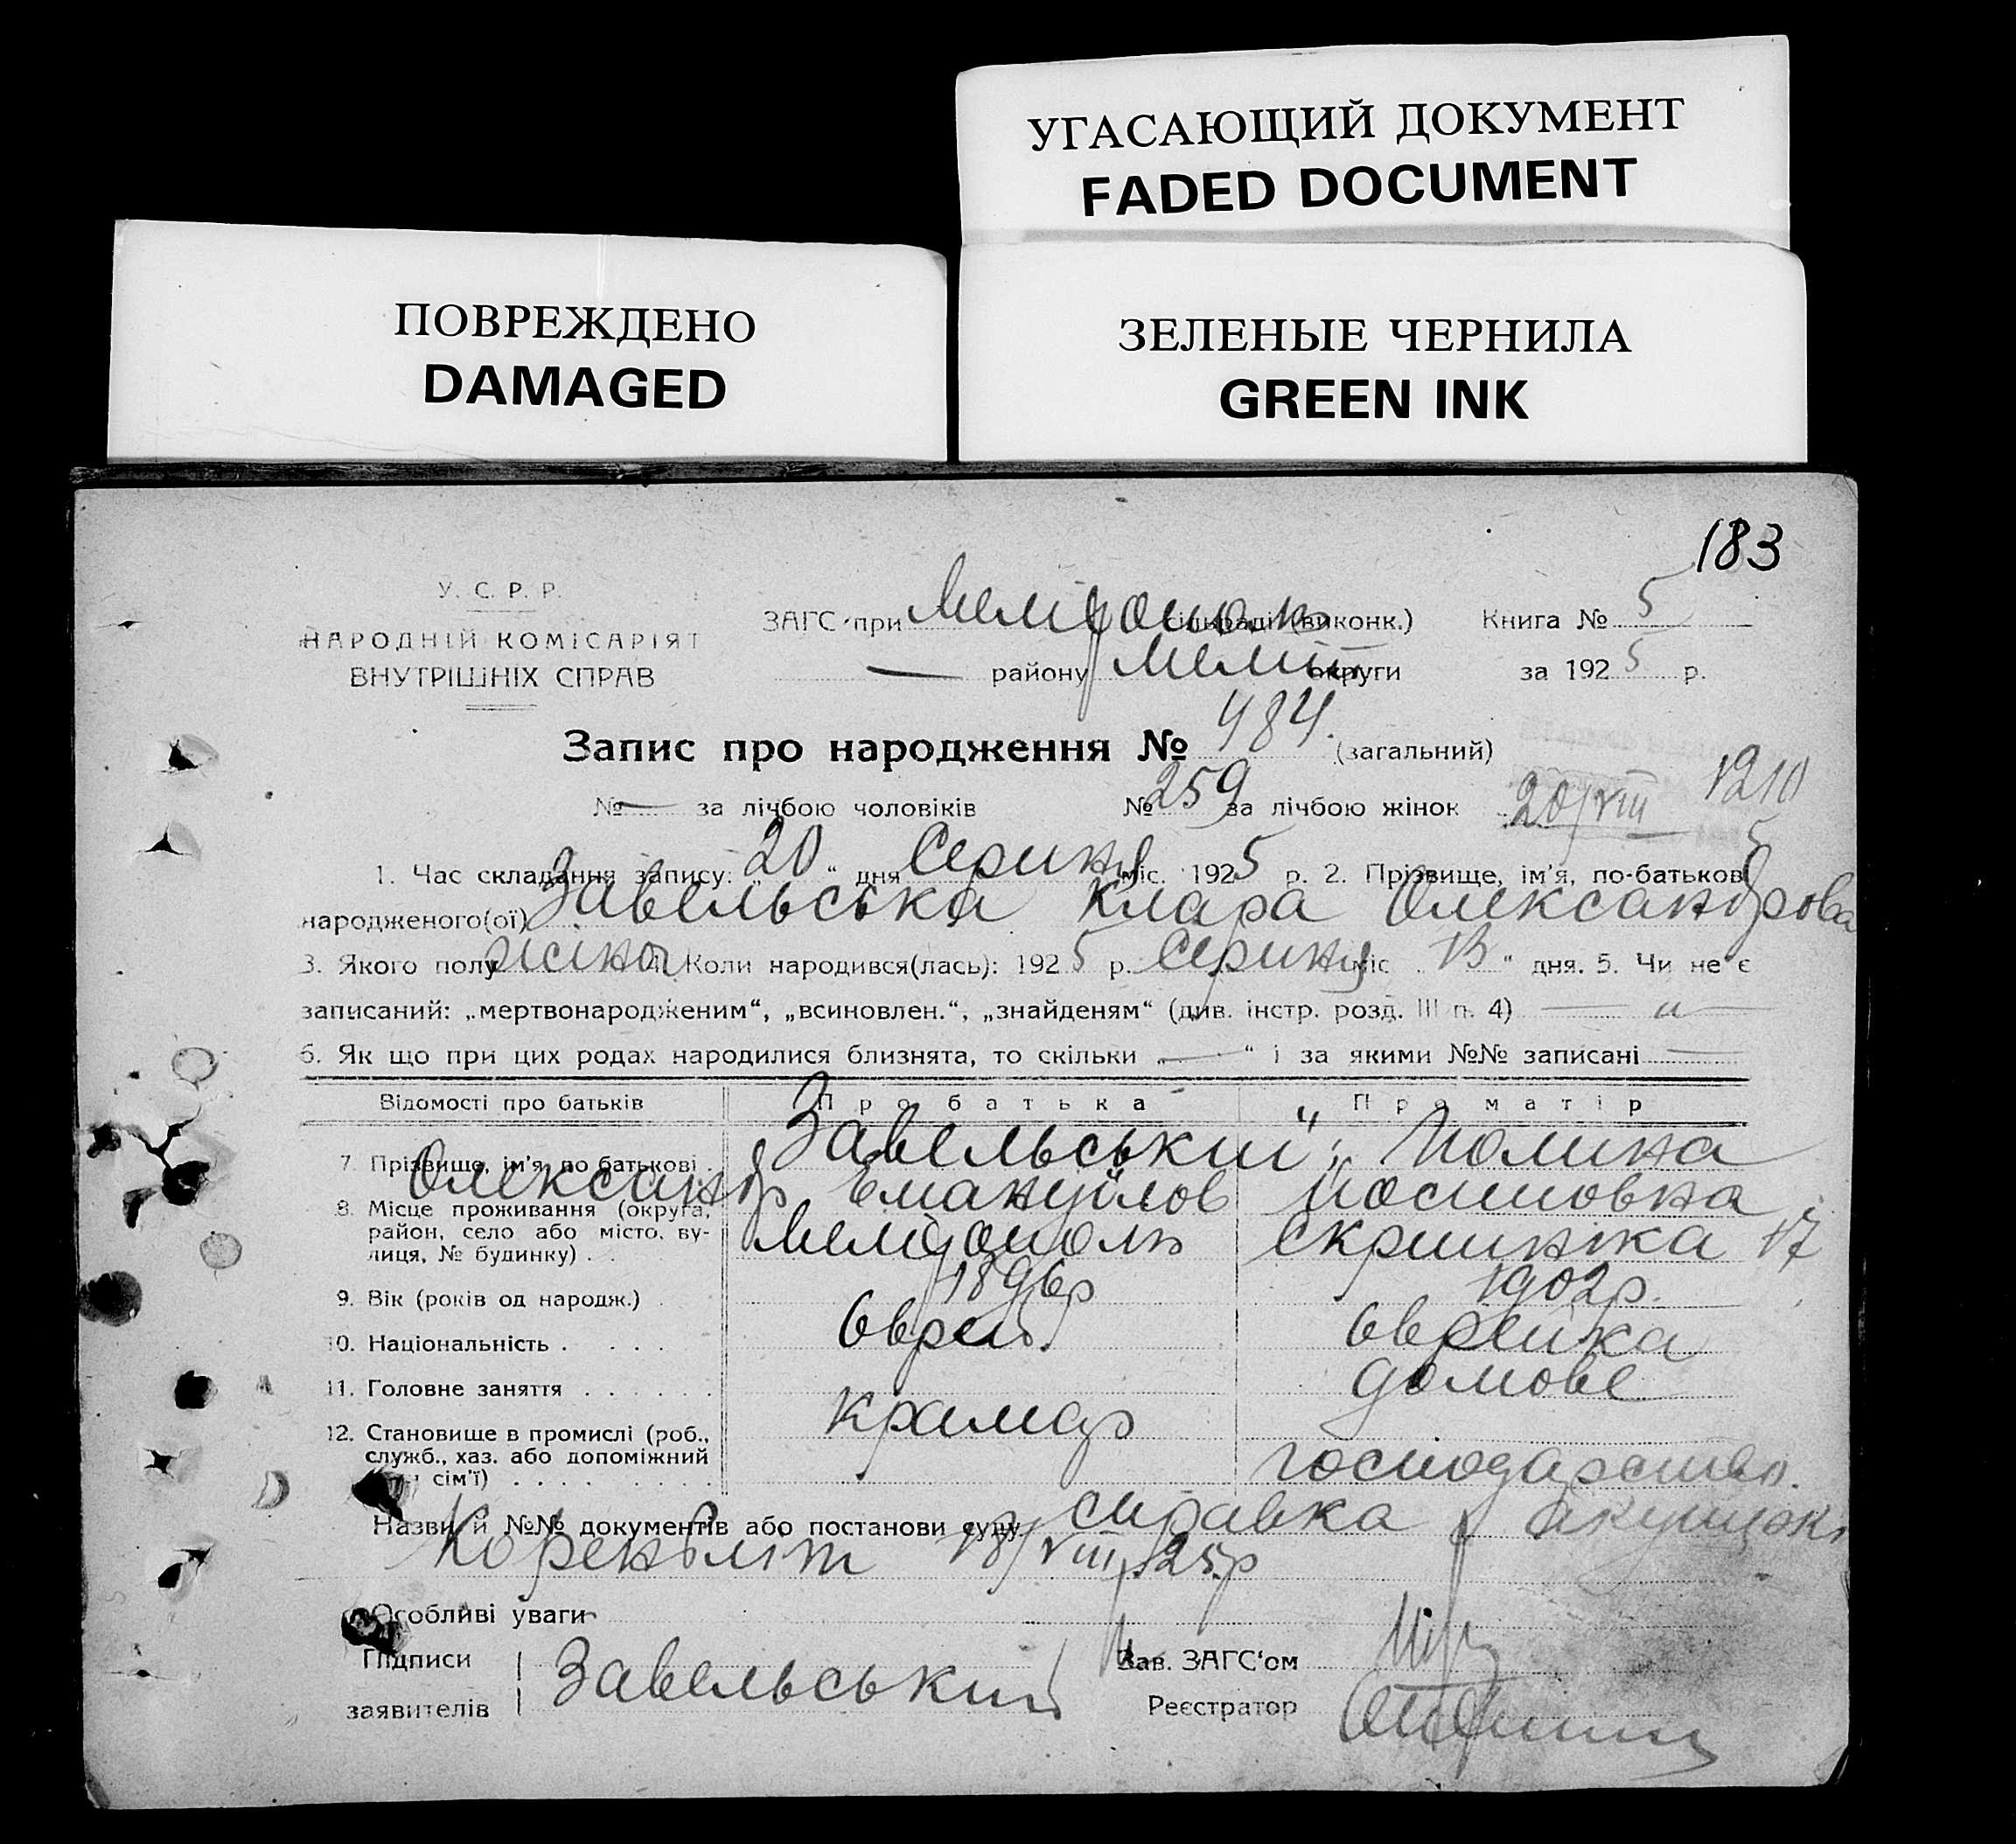 УГАСАЮЩИЙ ДОКУМЕНТ
FADED DOCUMENT
ПОВРЕЖДЕНО
DAMAGED
ЗЕЛЕНЫЕ ЧЕРНИЛА
GREEN INK
183
У. С. Р. Р.
НАРОДНІЙ КОМІСАРІЯТ
ВНУТРІШНІХ СПРАВ
ЗАГС при Мелітополь сільраді (виконк.) Книга № 5
— району Меліт округи за 1925 р.
Запис про народження № 484. (загальний)
№ — за лічбою чоловіків № 259 за лічбою жінок 20/VIII 1210
1. Час складання запису: „20“ дня Серпня міс. 1925 р. 2. Прізвище, ім'я, по-батькові
народженого(ої) Завельська Клара Олександрова
3. Якого полу жіноч 4. Коли народився(лась): 1925 р. Серпня міс „13“ дня. 5. Чи не є
записаний: „мертвонародженим“, „всиновлен.“, „знайденям“ (див. інстр. розд. III п. 4) — „ —
6. Як що при цих родах народилися близнята, то скільки „—“ і за якими №№ записані —
Відомості про батьків Про батька Про матір
7. Прізвище, ім'я, по батькові Завельський Полина
Олександр Емануїлов Йосиповна
8. Місце проживання (округа, район, село або місто, вулиця, № будинку) Мелітополь 17
9. Вік (років од народж.) 1896р 1902р.
10. Національність Єврей Єврейка
11. Головне заняття крамар домове
12. Становище в промислі (роб., служб., хаз. або допоміжний сім'ї) господарство.
Назви й №№ документів або постанови суду справка акушерки
18/VIII 25р
Особливі уваги
Підписи заявителів Завельський
Зав. ЗАГС'ом
Реєстратор